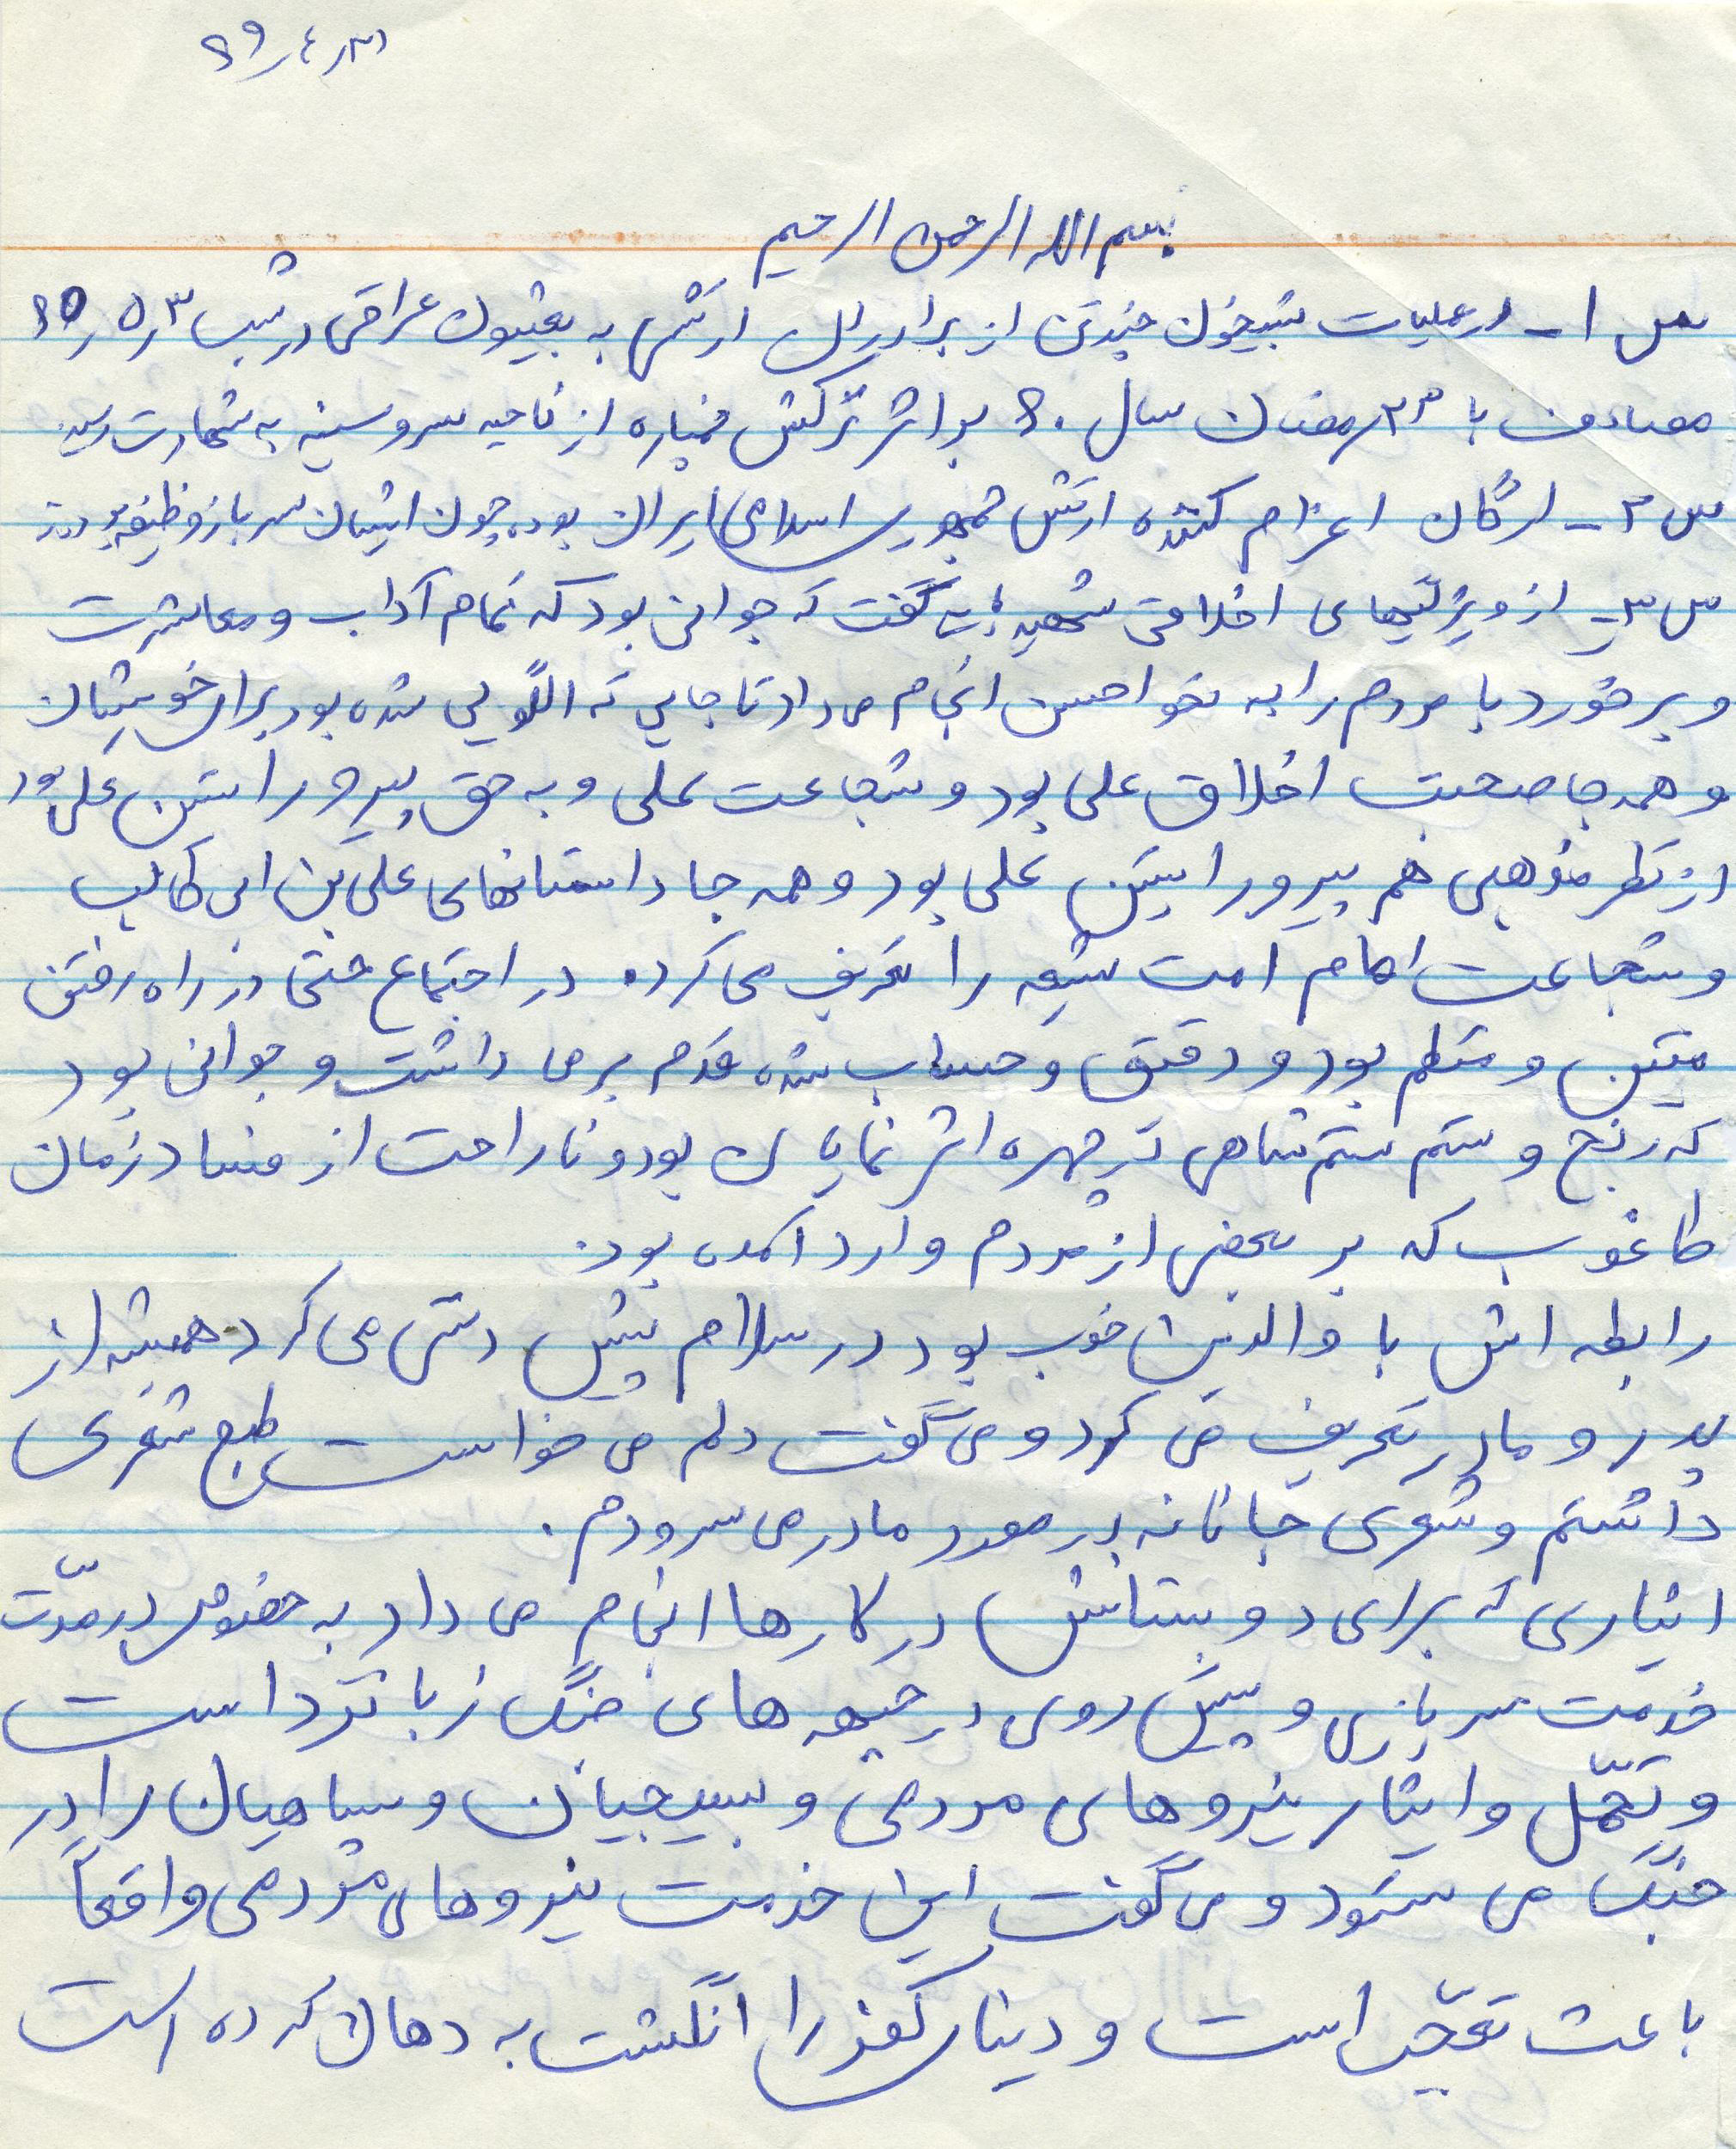 ۶۹/٤/۳۱
بسم الله الرحمن الرحیم
س ۱ـ در عملیات شبیخون چندتن از برادران ارتشی به بعثیون عراقی در شب ۳/۵/۶۰
مصادف با ۲۳ رمضان سال ۶۰ بر اثر ترکش خمپاره از ناحیه سر و سینه به شهادت رسید
س ۲ـ ارگان اعزام کننده ارتش جمهوری اسلامی ایران بوده چون ایشان سرباز وظیفه بودند
س ۳ـ از ویژگیهای اخلاقی شهید باید گفت که جوانی بود که تمام آداب و معاشرت
و برخورد با مردم را به نحو احسن انجام می داد تا جایی که الگویی شده بود برای خویشان
و همه جا صحبت اخلاق علی بود و شجاعت علی و به حق پیرو راستین علی بود
از نظر مذهبی هم پیرو راستین علی بود و همه جا داستانهای علی بن ابی طالب
و شجاعت امام امت شیعه را تعریف می کرد. در اجتماع حتی در راه رفتن
متین و منظم بود و دقیق و حساب شده قدم بر می داشت و جوانی بود
که رنج و ستم ستم شاهی در چهره اش نمایان بود و ناراحت از فساد زمان
طاغوت که بر بعضی از مردم وارد آمده بود.
رابطه اش با والدین خوب بود در سلام پیش دستی می کرد همیشه از
پدر و مادر تعریف می کرد و می گفت دلم می خواست طبع شعری
داشتم و شعری جانانه در مورد مادر می سرودم.
ایثاری که برای دوستانش در کارها انجام می داد به خصوص در مدّت
خدمت سربازی و پیش روی در جبهه های جنگ زبانزد است
و تحمّل و ایثار نیروهای مردمی و بسیجیان و سپاهیان را در
جنگ می ستود و می گفت این خدمت نیروهای مردمی واقعاً
باعث تعجّب است و دنیای کفر را انگشت به دهان کرده است